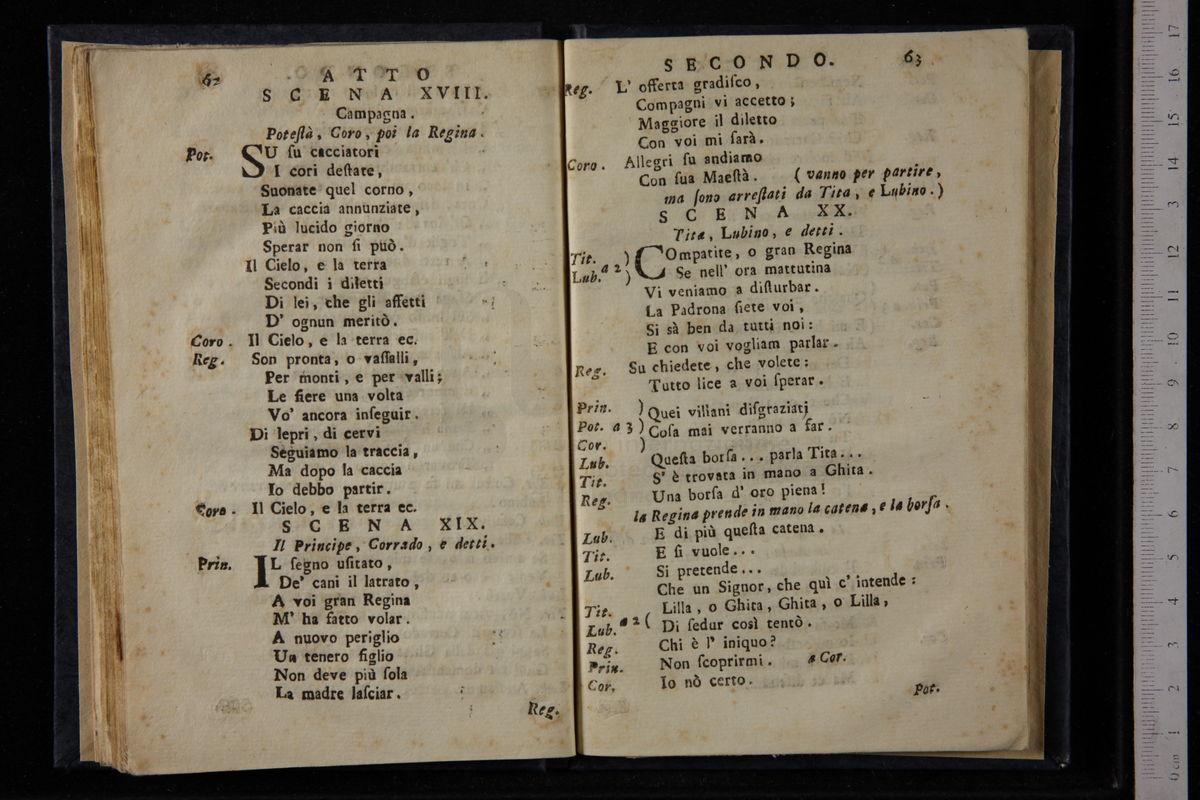 62 ATTO
SCENA XVIII.
Campagna.
Poteſtà, Coro, poi la Regina.
Pot. SU ſu cacciatori
I cori deſtate,
Suonate quel corno,
La caccia annunziate,
Più lucido giorno
Sperar non ſi può.
Il Cielo, e la terra
Secondi i diletti
Di lei, che gli affetti
D' ognun meritò.
Coro. Il Cielo, e la terra ec.
Reg. Son pronta, o vaſſalli,
Per monti, e per valli;
Le fiere una volta
Vo' ancora inſeguir.
Di lepri, di cervi
Seguiamo la traccia,
Ma dopo la caccia
Io debbo partir.
Coro. Il Cielo, e la terra ec.
SCENA XIX.
Il Principe, Corrado, e detti.
Prin. IL ſegno uſitato,
De' cani il latrato,
A voi gran Regina
M' ha fatto volar.
A nuovo periglio
Un tenero figlio
Non deve più ſola
La madre laſciar.
Reg.
SECONDO. 63
Reg. L' offerta gradiſco,
Compagni vi accetto;
Maggiore il diletto
Con voi mi ſarà.
Coro. Allegri ſu andiamo
Con ſua Maeſtà. (vanno per partire,
ma ſono arreſtati da Tita, e Lubino.)
SCENA XX.
Tita, Lubino, e detti.
Tit. ) COmpatite, o gran Regina
Lub. a 2 ) Se nell' ora mattutina
Vi veniamo a diſturbar.
La Padrona ſiete voi,
Si sà ben da tutti noi:
E con voi vogliam parlar.
Reg. Su chiedete, che volete:
Tutto lice a voi ſperar.
Prin. ) Quei villani diſgraziati
Pot. a 3 ) Coſa mai verranno a far.
Cor. )
Lub. Queſta borſa... parla Tita...
Tit. S' è trovata in mano a Ghita.
Reg. Una borſa d' oro piena!
la Regina prende in mano la catena, e la borſa.
Lub. E di più queſta catena.
Tit. E ſi vuole...
Lub. Si pretende...
Che un Signor, che quì c' intende:
Tit. ( Lilla, o Ghita, Ghita, o Lilla,
Lub. a 2 ( Di ſedur così tentò.
Reg. Chi è l' iniquo?
Prin. Non ſcoprirmi. a Cor.
Cor. Io nò certo.
Pot.